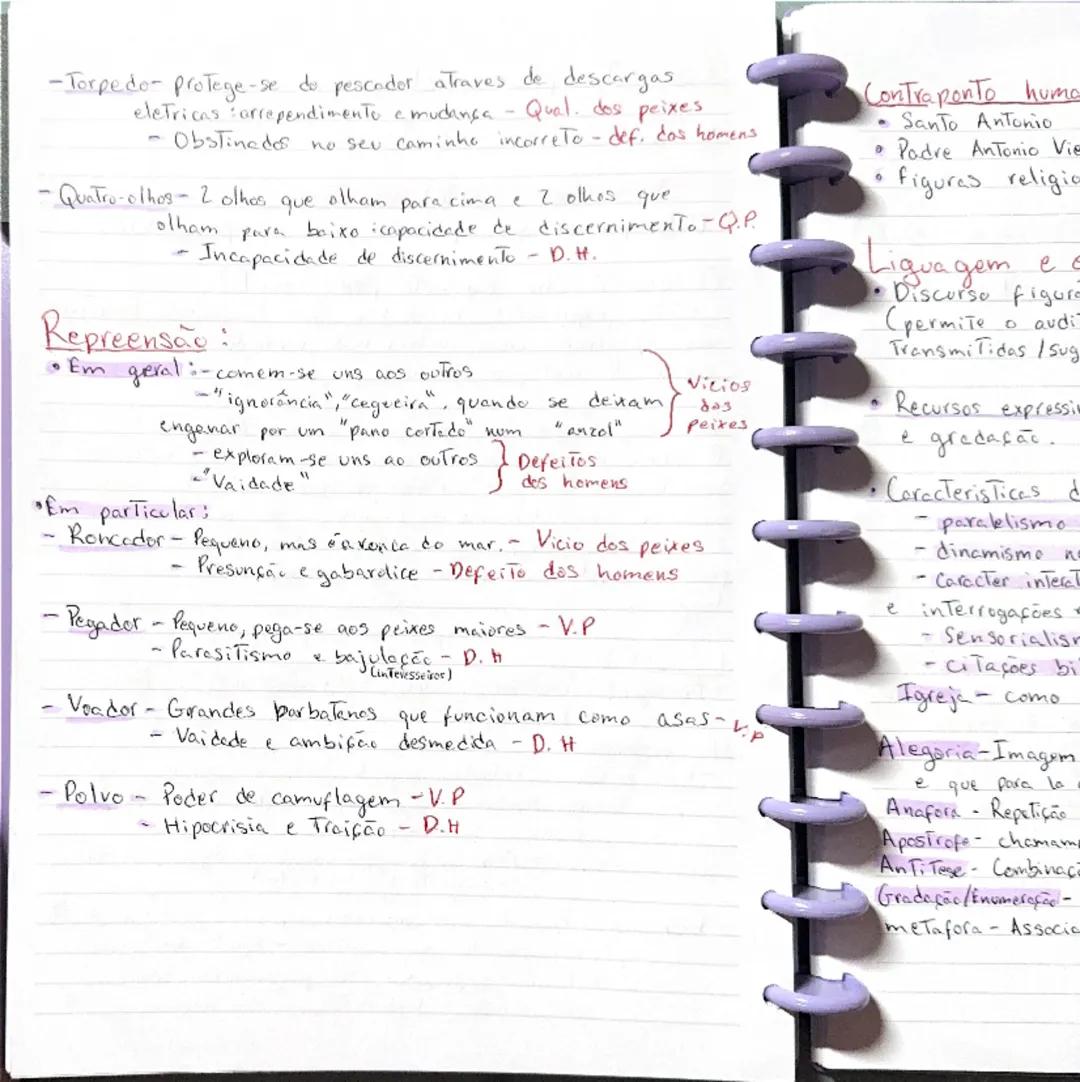 -Torpedo- protege-se do pescador atraves de descargas
eletricas : arrependimento e mudança - Qual. dos peixes
- Obstinados no seu caminho incorreto - def. dos homens
- Quatro-olhos- 2 olhos que olham para cima e 2 olhos que
olham para baixo : capacidade de discernimento - Q.P.
- Incapacidade de discernimento - D.H.
Repreensão :
• Em geral :- comem-se uns aos outros
-"ignorância", "cegueira", quando se deixam
enganar por um "pano cortado" num "anzol"
Vícios
dos
peixes
- exploram-se uns ao outros
-"Vaidade"
Defeitos
dos homens
• Em particular:
- Roncador - Pequeno, mas é a do mar. - Vicio dos peixes
- Presunção e gabarolice - Defeito dos homens
- Pegador - Pequeno, pega-se aos peixes maiores - V.P
- Parasitismo e bajulação - D.H
(interesseiros)
- Voador - Grandes barbatanas que funcionam como asas - V.P
- Vaidade e ambição desmedida - D.H
- Polvo - Poder de camuflagem - V.P
- Hipocrisia e Traição - D.H
Contraponto huma
• Santo Antonio
• Padre Antonio Vie
• figuras religio
Liguagem e e
• Discurso figura
(permite o audi
Transmitidas / sug
• Recursos expressi
e gradação.
• Caracteristicas d
- paralelismo
- dinamismo n
- Caracter interat
e interrogações
- Sensorialis
- citações bi
Igreja - como
Alegoria - Imagem
e que para la
Anafora - Repetição
Apostrofe - chamam
Antitese - Combinaç
Gradação/Enumeração -
metafora - Associa